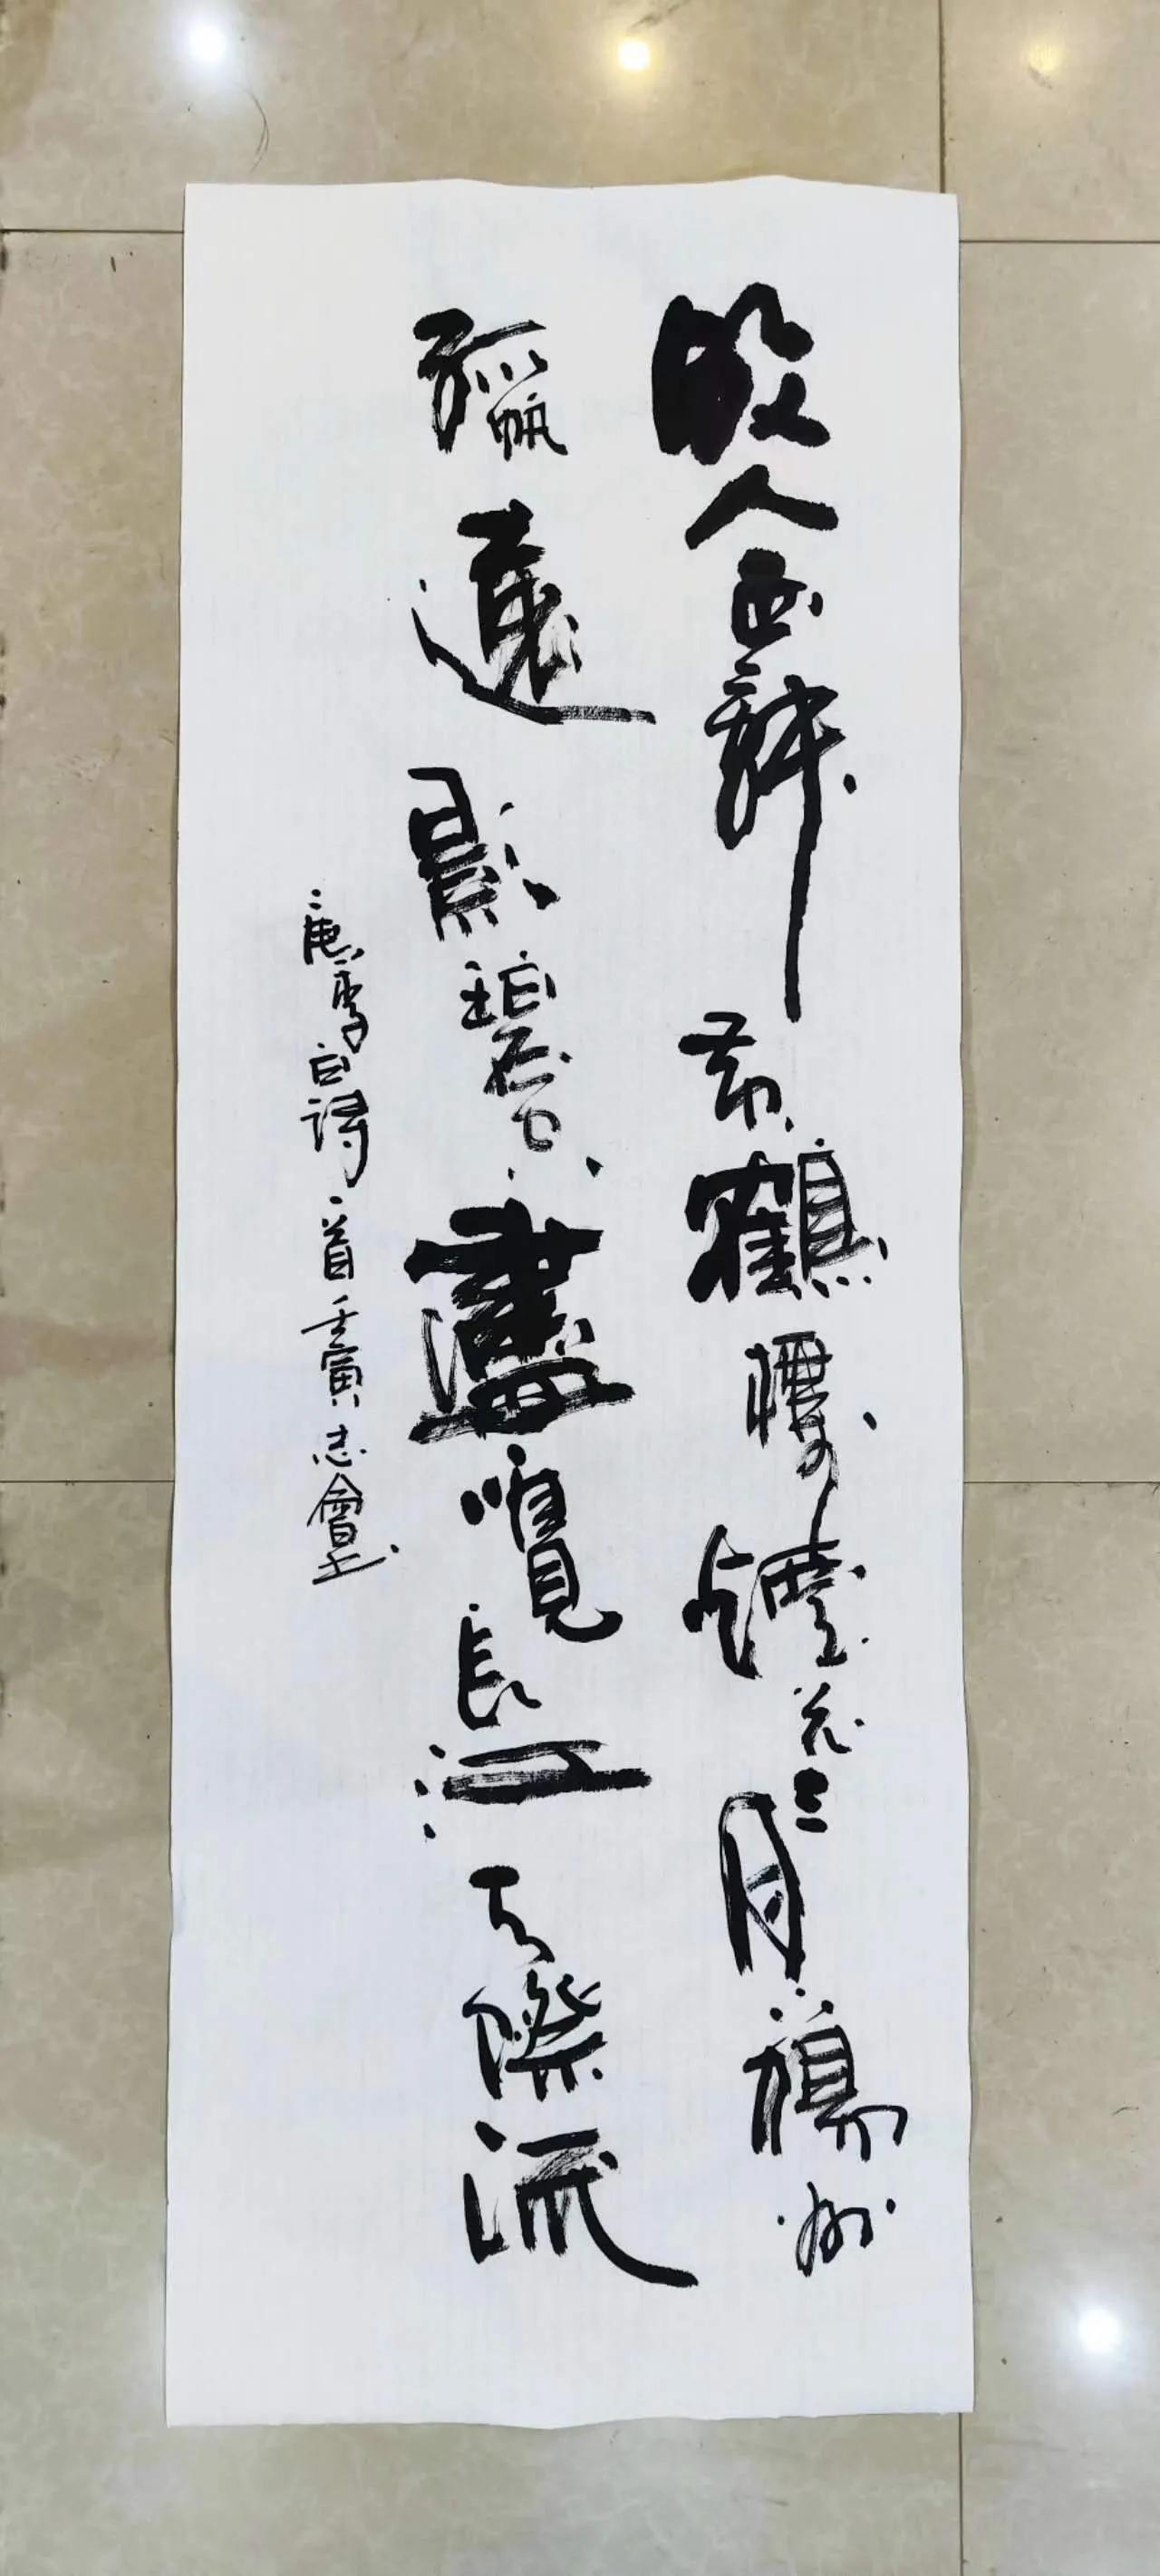 故人西辭黄鶴樓煙花三月揚州
孤帆遠影碧空盡唯覽長江天際流
唐李白詩一首壬寅志會